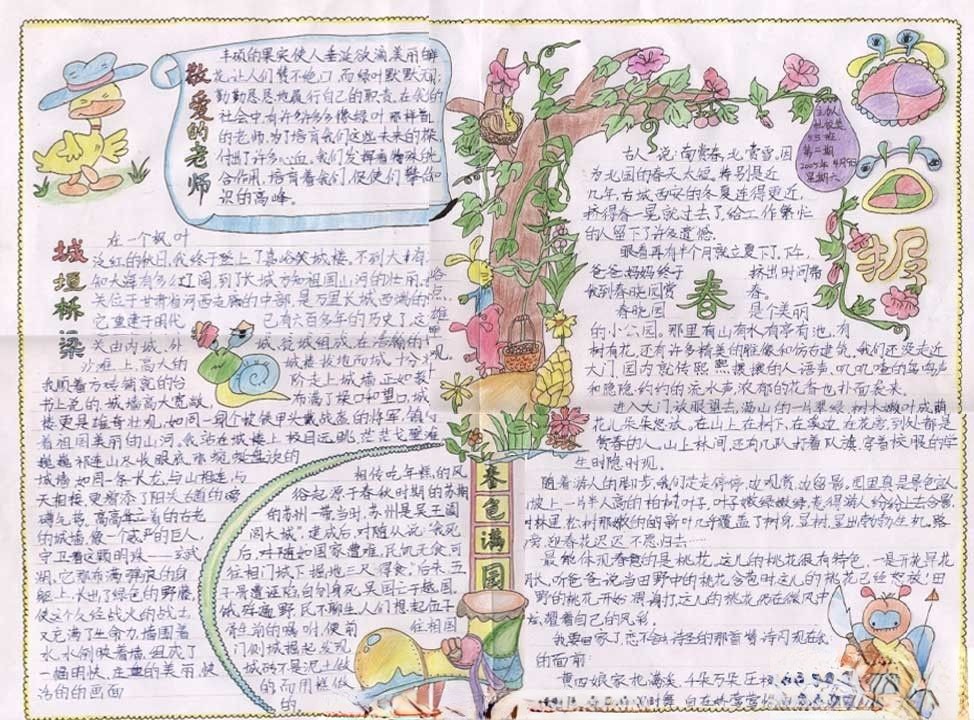 敬爱的老师
丰硕的果实使人垂涎欲滴美丽的鲜
花,让人们赞不绝口,而绿叶默默无
勤勤恳恳地履行自己的职责。在我的
社会中,有许许多多像绿叶那样
的老师,为了培育我们这些未来的
付出了许多心血。我们发挥着
合作用,培育着我们,促使们攀
识的高峰。
城垣桥梁
在一个枫叶
红的秋日,我终于登上了嘉峪关城楼,不到大
知大海有多么辽阔,到了长城方知祖国山河的壮丽
关位于甘肃省河西走廊的中部,是万里长城西端的
它重建于明代
已有六百多年的历史了,这
关由内城、外
城、瓮城组成,在浩瀚的
沙滩上,高大的
城楼拔地而城,十分
我顺着方砖铺就的台
阶走上城墙正如教
书上说的,城墙高大宽敞,
布满了垛口和望口,城
楼更是雄奇壮观,如同一员个披铁甲头戴战盔的将军,镇守
着祖国美丽的山河。我站在城楼上极目远眺,茫茫戈壁滩
巍巍祁连山尽收眼底,
城墙如同一条长龙,与山相连,与
天相接,更增添了阳关古道的磅
礴气势,高高耸立着的古老
的城墙,像一个威严的巨人,
守卫着这颗明珠——玄武
湖,它那布满弹痕的身
躯上,长出了绿色的野藤,
使这个久经战火的战士
又充满了生命力,墙围着
水,水倒映着墙,组成了
一幅明快、庄重的美丽,
洁的的画面
相传吃年糕的风
俗起源于春秋时期的苏
的苏州一带,当时,苏州是吴王阖
闾大城”。建成后,对随从说:“我死
后,对随如国家遭难,民饥无食,可
往相门城下掘地三尺得食。”后来,五
子胥遭诬陷自刎身死,吴国亡于越国,
饿殍遍野,民不聊生,人们想起伍子
胥生前的嘱咐,便前
往相国
门侧城掘起,发现
城砖不是泥土做
的,而用糕做
的。
春色满园
主办人
五三班
第二期
2005年4月9日
星期六
春
古人说:南赏春,北赏雪。因
为北国的春天太短,特别是近
几年,古城西安的冬夏连得更近,
挤得春一晃就过去了,给工作繁忙
的人留下了许多遗憾。
眼看再有半个月就立夏了,下午,
爸爸妈妈终于
挤出时间带
我到春晓园赏
春。
春晓园
是个美丽
的小公园。那里有山有水,有亭有池,有
树有花,还有许多精美的雕像和仿古建筑,我们还没走近
大门,园内就传熙熙攘攘的人语声,叽叽喳的鸟鸣声
和隐隐约约的流水声,浓郁的花香也扑面袭来。
进入大门放眼望去,满山的一片翠绿,树木嫩叶成荫
花儿朵朵怒放。在山上,在树下,在溪边,在花旁,到处都是
赏春的人,山上林间,还有几队打着队旗,穿着校服的学
生时隐时现。
随着游人的脚步,我们走走停停,边观赏,边留影。园里真是景色宜人
坡上,一片半人高的柏树叶子,叶子嫩绿嫩绿,惹得游人纷纷上去合影,
叶林里,松树那嫩的的新叶几乎覆盖了树身,显树,呈出勃勃生机,路
旁,迎春花迟迟不愿归去……
最能体现春意的是桃花,这儿的桃花很有特色,一是开花早,花
长,听爸爸说,当田野中的桃花含苞时,这儿的桃花已经怒放!田
野的桃花开始凋谢了,这儿的桃花仍在微风中
炫耀着自己的风彩。
我要回家了,忍不会,诗圣的那首诗闪现在我
的面前:
黄四娘家花满溪,千朵万朵压
时舞,自在